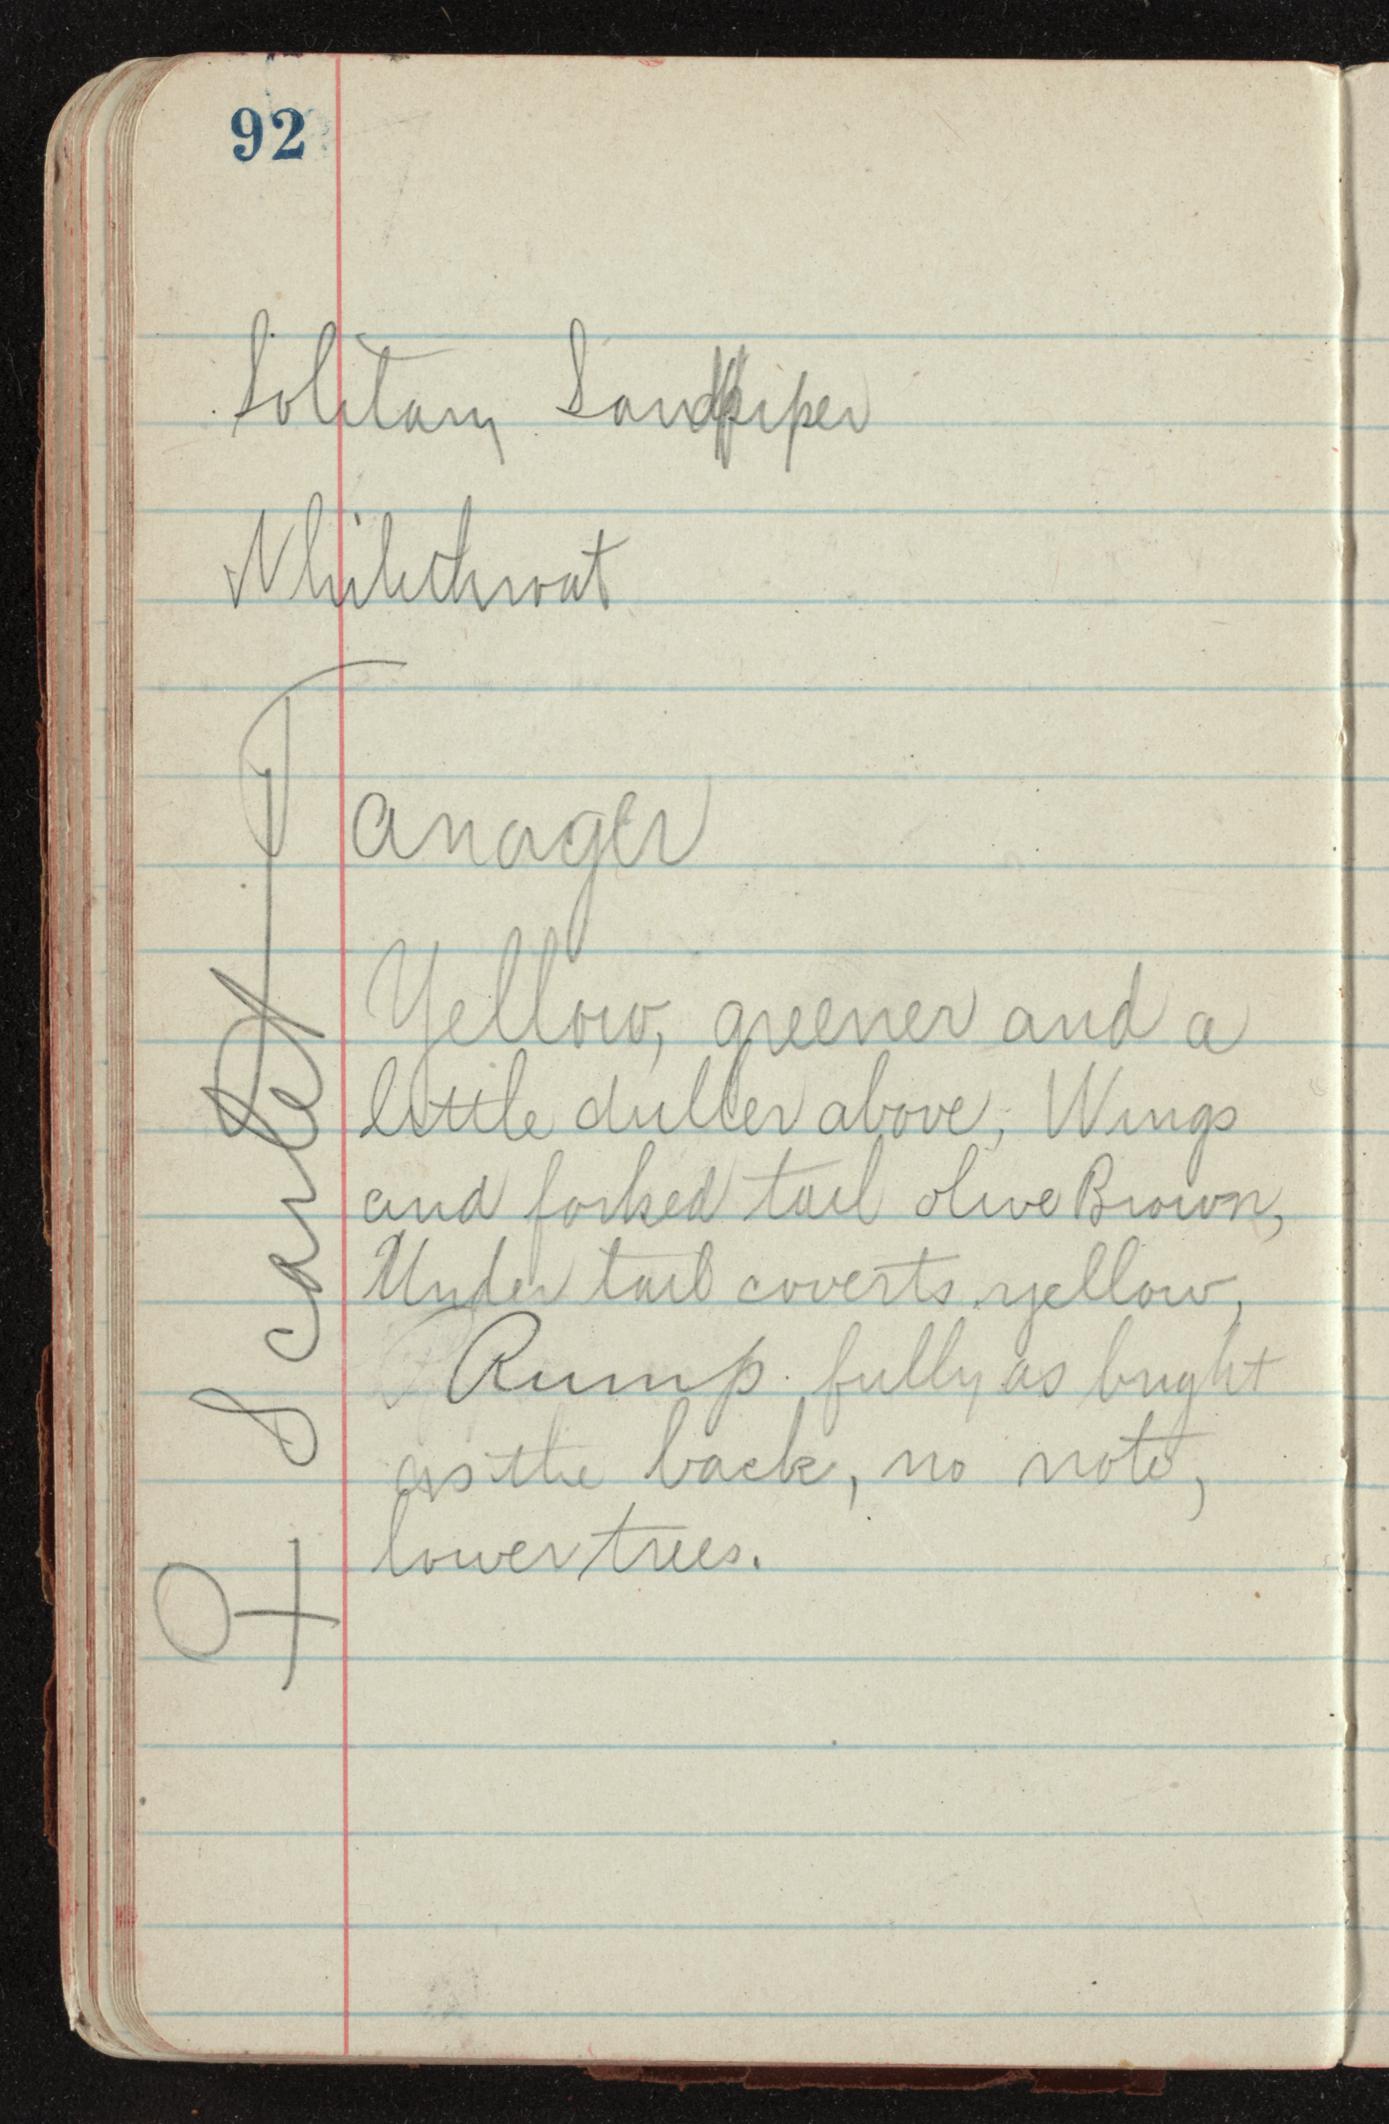 92
Solitary Sandpiper
Whitethroat
Tanager
♀ Scarlet
Yellow, greener and a
little duller above, Wings
and forked tail olive Brown,
Under tail coverts yellow,
Rump fully as bright
as the back, no note,
lower trees.